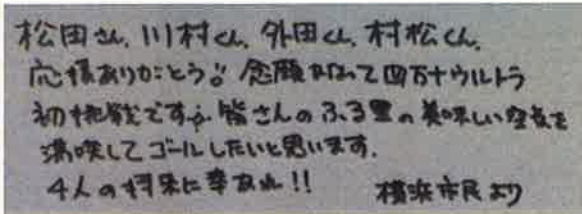 松田さん、川村くん、外田くん、村松くん、
応援ありがとう。念願かなって四万十ウルトラ
初挑戦です。皆さんのふる里の美味しい空気を
満喫してゴールしたいと思います。
4人の将来に幸あれ!! 横浜市民より